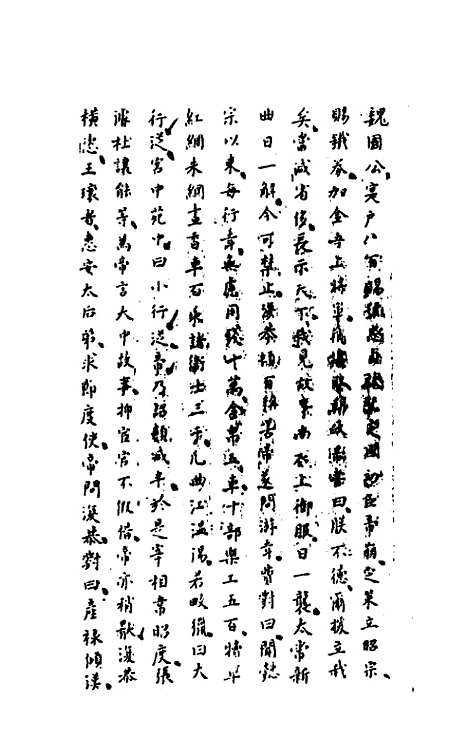 魏國公實户八百賜號忠貞啟聖定國功臣帝崩定策立昭宗
賜鐵券加金吾上將軍稍攬朝政嘗曰朕不德爾援立我
矣當減省侈長示天下我見故事尚衣上御服日一襲太常新
曲日一解今可禁止復恭頓首稱善帝遂問游幸費對曰聞懿
宗以來每行幸無慮用錢十萬金帛五車十部樂工五百犢車
紅網朱網畫香車百乘諸衛士三千凡曲江溫湯若畋獵曰大
行從宮中苑中曰小行從帝乃詔類減半於是宰相韋昭度張
濬杜讓能等爲帝言大中故事抑宦官不假借帝亦稍厭復恭
橫恣王瓌者惠安太后弟求節度使帝問復恭對曰產禄傾漢